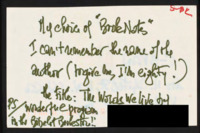 My choice of "Book Notes"
I can't remember the name of the
author (forgive me, I'm eighty!)
the title: The Words we live by
PS wonderful program
is the Bookstore!!